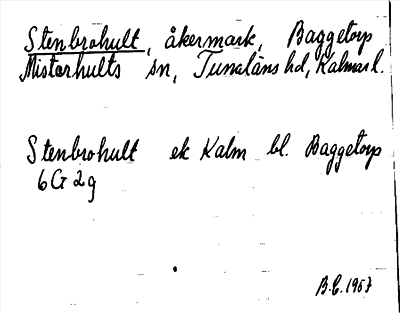 Stenbrohult, åkermark, Baggetorp
Misterhults sn, Tunaläns hd, Kalmar l.
Stenbrohult ek Kalm bl. Baggetorp
6G 2g
B.E. 1957